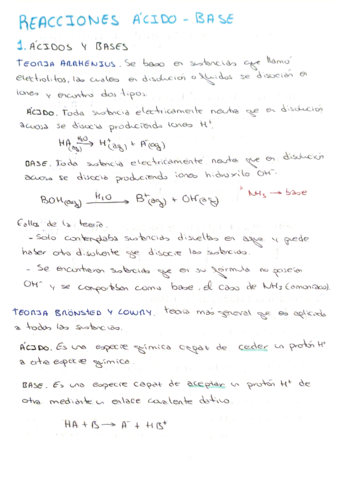 REACCIONES ÁCIDO - BASE
1. ÁCIDOS Y BASES
TEORIA ARRHENIUS. Se basó en sustancias que llamó
electrolitos, las cuales en disolución o fundidos se disocian en
iones y encontró dos tipos.
ÁCIDO. Toda sustancia eléctricamente neutra que en disolución
acuosa se disocia produciendo iones H⁺.
HA(aq) —H₂O→ H⁺(aq) + A⁻(aq)
BASE. Toda sustancia eléctricamente neutra que en disolución
acuosa se disocia produciendo iones hidroxilo OH⁻.
BOH(aq) —H₂O→ B⁺(aq) + OH⁻(aq)
* NH₃ → base
Fallos de la teoría.
- Solo contemplaba sustancias disueltas en agua y puede
haber otro disolvente que disocie las sustancias.
- Se encontraron sustancias que en su fórmula no poseían
OH⁻ y se comportaban como base, el caso de NH₃ (amoniaco).
TEORIA BRÖNSTED Y LOWRY. teoría más general que es aplicada
a todas las sustancias.
ÁCIDO. Es una especie química capaz de ceder un protón H⁺
a otra especie química.
BASE. Es una especie capaz de aceptar un protón H⁺ de
otra mediante un enlace covalente dativo.
HA + B → A⁻ + HB⁺